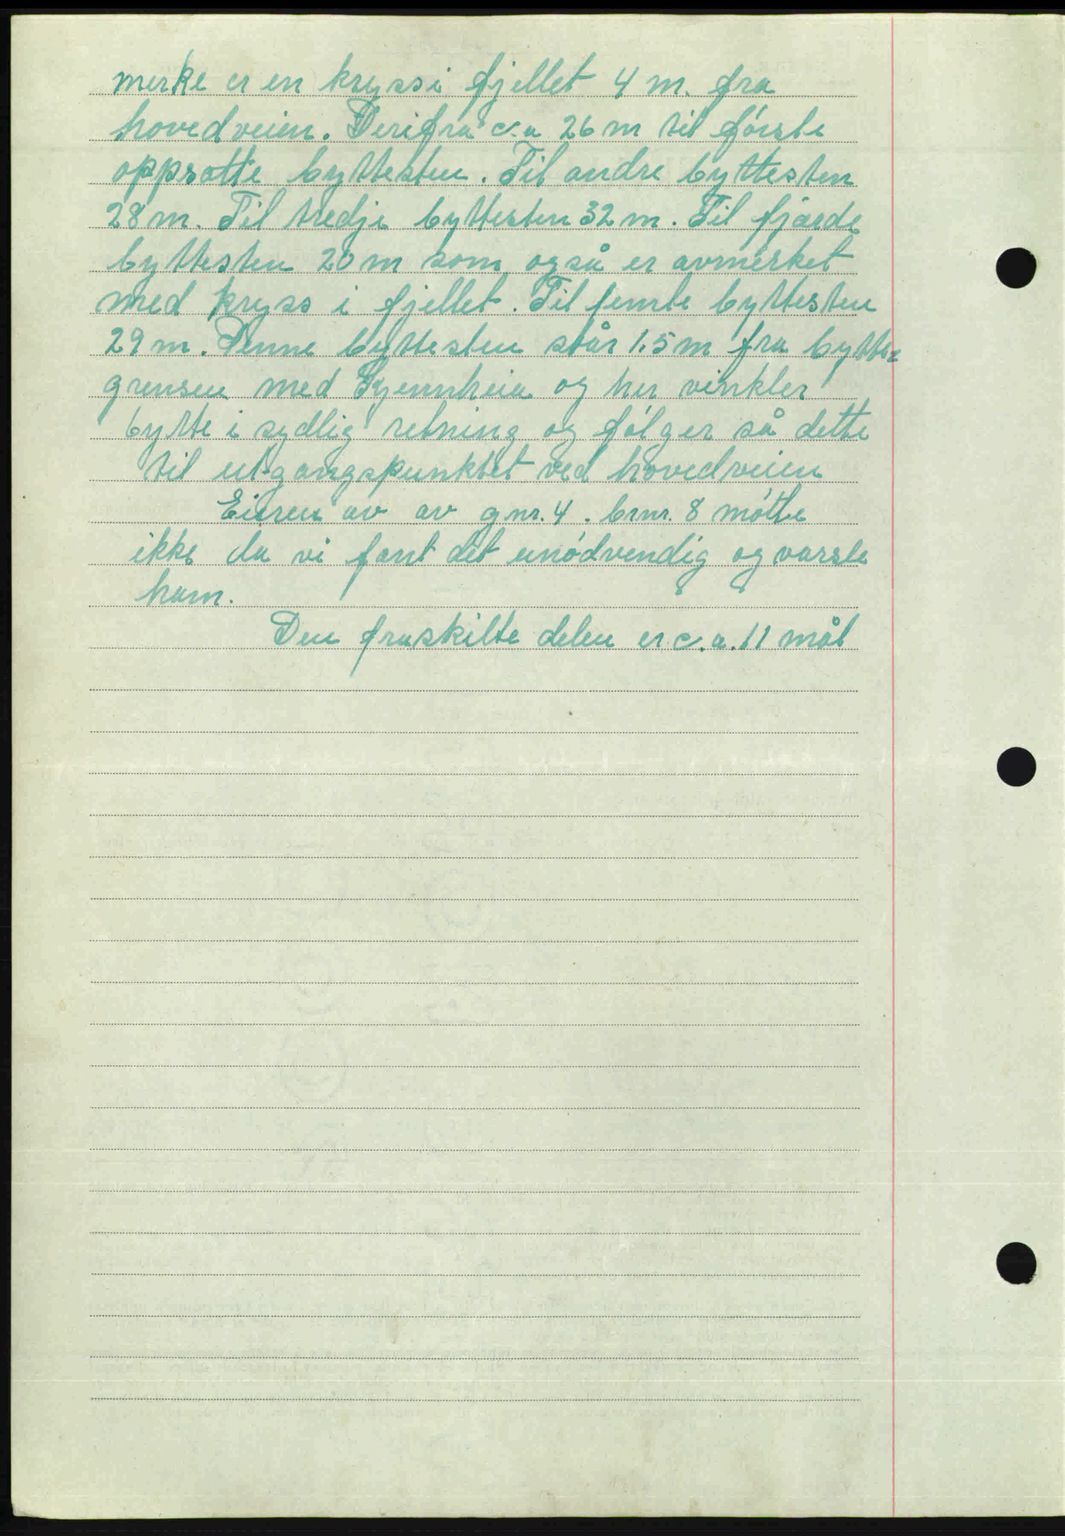 merke er en kryss i fjellet 4 m. fra
hovedveien. Derifra c.a 26 m til første
oppsatte byttesten. Til andre byttesten
28 m. Til tredje byttesten 32 m. Til fjærde
byttesten 20 m som også er avmerket
med kryss i fjellet. Til femte byttesten
29 m. Denne byttesten står 1.5 m fra bytte-
grensen med Kjennheia og her vinkler
bytte i sydlig retning og følger så dette
til utgangspunktet ved hovedveien
Eieren av av gnr. 4. brnr. 8 møtte
ikke da vi fant det unødvendig og varsle
ham.
Den fraskilte delen er c.a. 11 mål